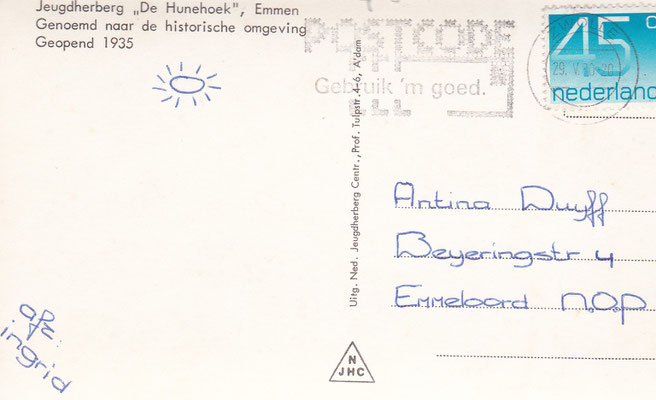 Jeugdherberg „De Hunehoek", Emmen
Genoemd naar de historische omgeving
Geopend 1935
POSTCODE
Gebruik 'm goed.
45 c
nederland
Uitg. Ned. Jeugdherberg Centr., Prof. Tulpstr. 4-6, A'dam
Antina Duyff
Beyeringstr 4
Emmeloord N.O.P
afz:
ingrid
N
JHC